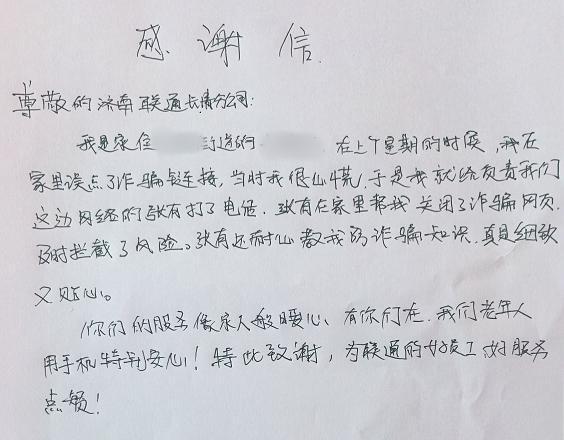 感谢信
尊敬的济南联通长清分公司:
我是家住 街道的 在上个星期的时候,我在
家里误点了诈骗链接,当时我很心慌,于是我就给负责我们
这边网络的张有打了电话,张有在家里帮我关闭了诈骗网页,
及时拦截了风险。张有还耐心教我防诈骗知识,真是细致
又贴心。
你们的服务像家人般暖心、有你们在,我们老年人
用手机特别安心!特此致谢,为联通的好员工、好服务
点赞!